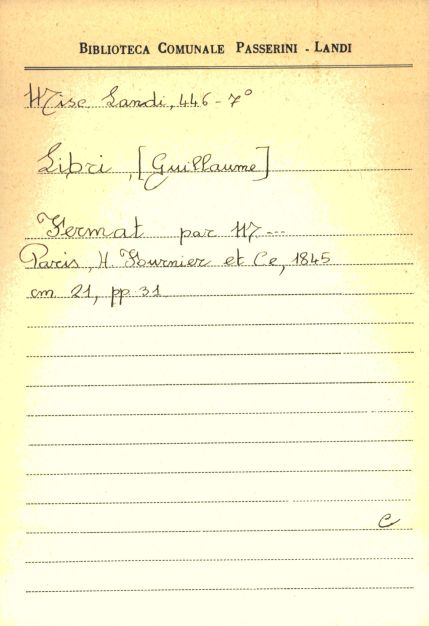 BIBLIOTECA COMUNALE PASSERINI - LANDI
Misc Landi, 446-7°
Libri, [Guillaume]
Fermat par M---
Paris, H. Fournier et Ce, 1845
cm 21, pp. 31
C